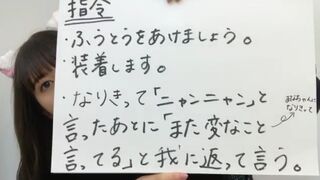 指令
・ふうとうをあけましょう。
・装着します。
・なりきって「ニャンニャン」と
言ったあとに「また変なこと
言ってる」と我に返って言う。
なりきって